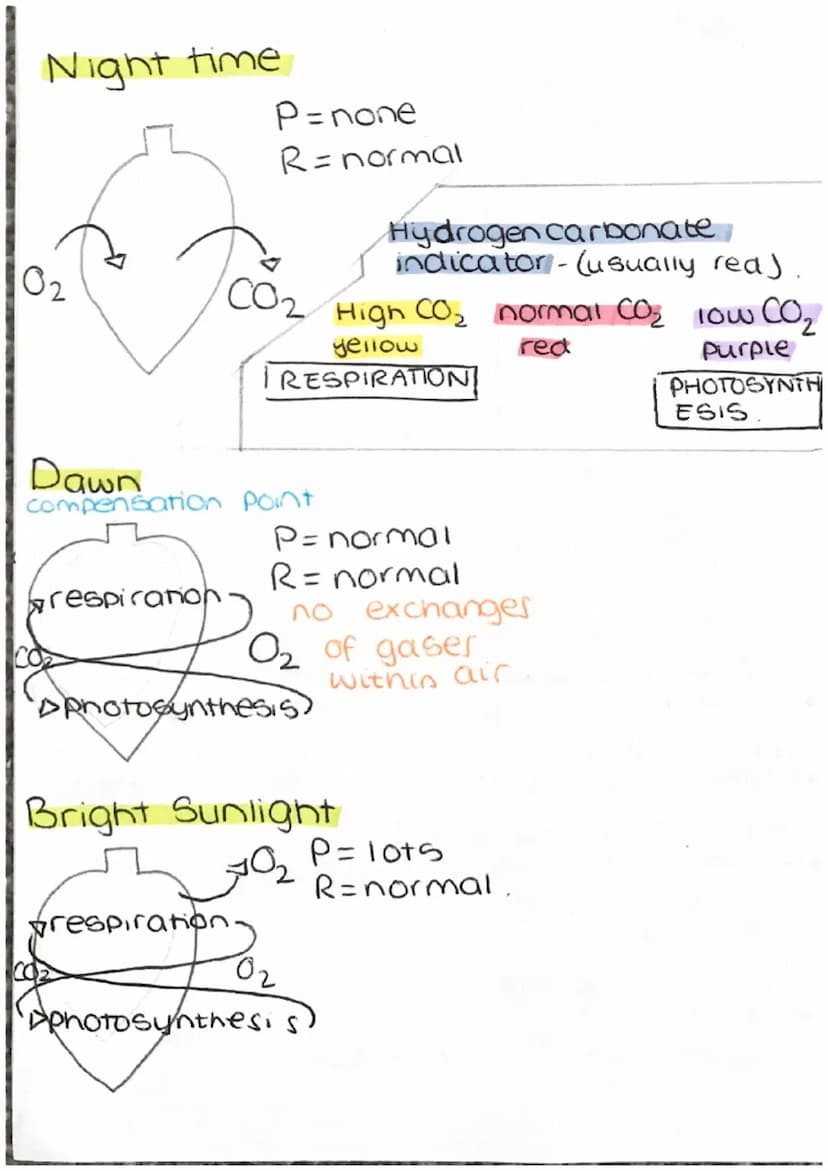 Night time
P = none
R = normal
O₂
CO₂
Hydrogencarbonate
indicator - (usually red).
High CO₂
yellow
RESPIRATION
normal CO₂
red
low CO₂
purple
PHOTOSYNTH
ESIS.
Dawn
compensation point
P = normal
R = normal
no exchanges
of gases
within air
respiration
CO₂
O₂
photosynthesis
Bright Sunlight
O₂
P = lots
R = normal.
respiration
CO₂
O₂
photosynthesis